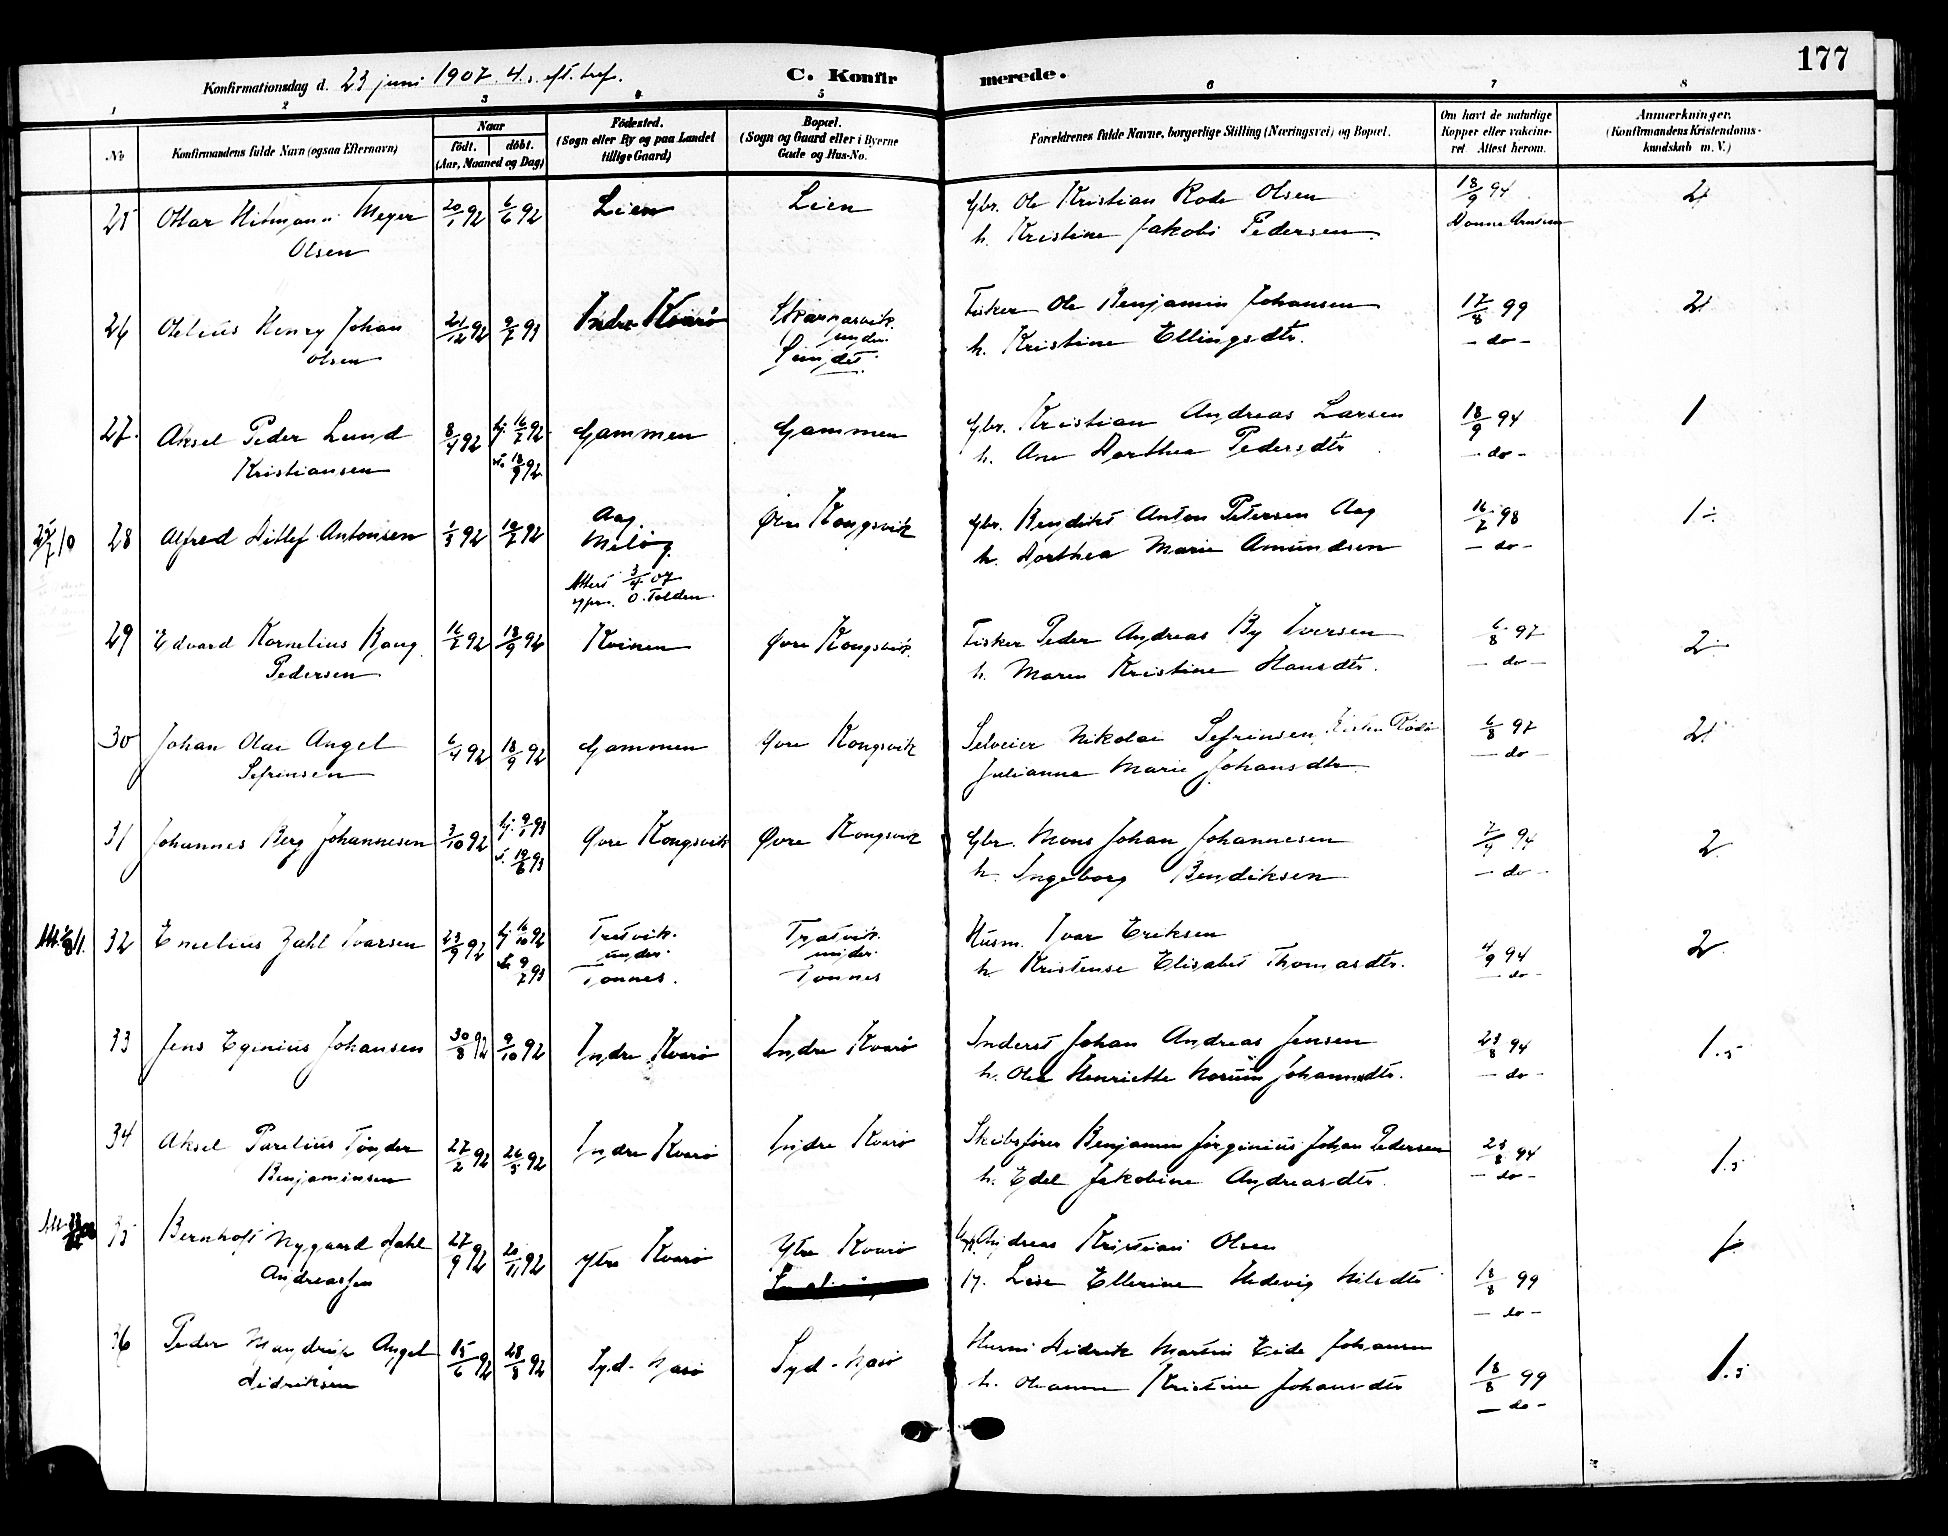 177
Konfirmationsdag d. 23 juni 1907. 4. s. eft. tref.
C. Konfirmerede.
1 2 3 4 5 6 7 8
No
Konfirmandens fulde Navn (ogsaa Efternavn)
Naar
født. døbt.
(Aar, Maaned og Dag)
Fødested.
(Sogn eller By og paa Landet
tillige Gaard)
Bopæl.
(Sogn og Gaard eller i Byerne
Gade og Hus-No.
Forældrenes fulde Navne, borgerlige Stilling (Næringsvei) og Bopæl.
Om havt de naturlige
Kopper eller vakcine-
ret. Attest herom.
Anmærkninger.
(Konfirmandens Kristendoms-
kundskab m. V.)
25 Ottar Hitmann Meyer 20/1 92 6/6 92 Lien Lien Gbr. Ole Kristian Rode Olsen 18/9 94 2
Olsen h. Kristine Jakobi Pedersen
26 Oleliús Henry Johan 21/12 92 9/7 93 Indre Kvarø Gbr
Fisker Ole Benjamin Johansen 17/8 99 2
olsen under Sundet h. Kristine Ellingsdtr. – do –
27. Aksel Peder Lund 8/4 92 hj. 16/7 92 Gammen Gammen Gbr. Kristian Andreas Larsen 18/9 94 1
Kristiansen 18/9 92 h. Ane Dorthea Pedersdtr – do –
28 Alfred Ditlef Antonsen 1/3 92 92 Aag Øvre Kongsvik Gbr. Bendikt Anton Petersen Aag 16/7 98 1÷
Meløy h. Dorthea Marie Amundsen – do –
Attest 3/4 07
29 Edvard Kornelius Kaug 16/7 92 18/9 92 Kvinen Øvre Kongsvik Fisker Peder Andreas By Iversen 6/8 97 2
Pedersen h. Maren Kristine Hansdtr. – do –
30 Johan Olai Angel 6/4 92 18/9 92 Gammen Øvre Kongsvik Selveier Nikolai Sefrinsen 6/8 97 2
Sefrinsen Julianna Marie Johansdtr – do –
31 Johannes Berg Johannesen 3/10 92 hj. 9/1 93 Øvre Kongsvik Øvre Kongsvik Gbr. Mons Johan Johannesen 7/9 94 2
93 h. Ingeborg Bendiksen – do –
32 Emelius Zahl Ivarsen 23/9 92 hj 16/10 92 Tretvik Tratvik Husm. Ivar Eriksen 4/9 94 2
9/7 93 under under h Kristense Elisabet Thomasdtr. – do –
Tonnes. Tonnes
33 Jens Eginius Johansen 30/8 92 9/10 92 Indre Kvarø Indre Kvarø Inderst Johan Andreas Jensen 23/8 94 1.5
h. Olea Henriette Norum Johannesdtr. – do –
34 Aksel Parelius Tønder 27/2 92 26/5 92 Indre Kvarø Indre Kvarø Skibsfører Benjamin Jørginius Johan Pedersen 23/8 94 1.5
Benjaminsen h. Edel Jakobine Andreasdtr. – do –
35 Bernhoft Nygaard Dahl 27/9 92 20/11 92 Ytre Kvarø Ytre Kvarø Andreas Kristian Olsen 1
Andreassen Lise Ellerine Hedevig Nilsdtr 18/8 99
– do –
36 Peder Mandrik Angel 15/6 92 28/8 92 Syd-Nasø Syd-Nasø Husm Didrik Martin Eide Johansen 18/8 99 1.5
Didriksen h. Oleanna Kristine Johansdtr – do –